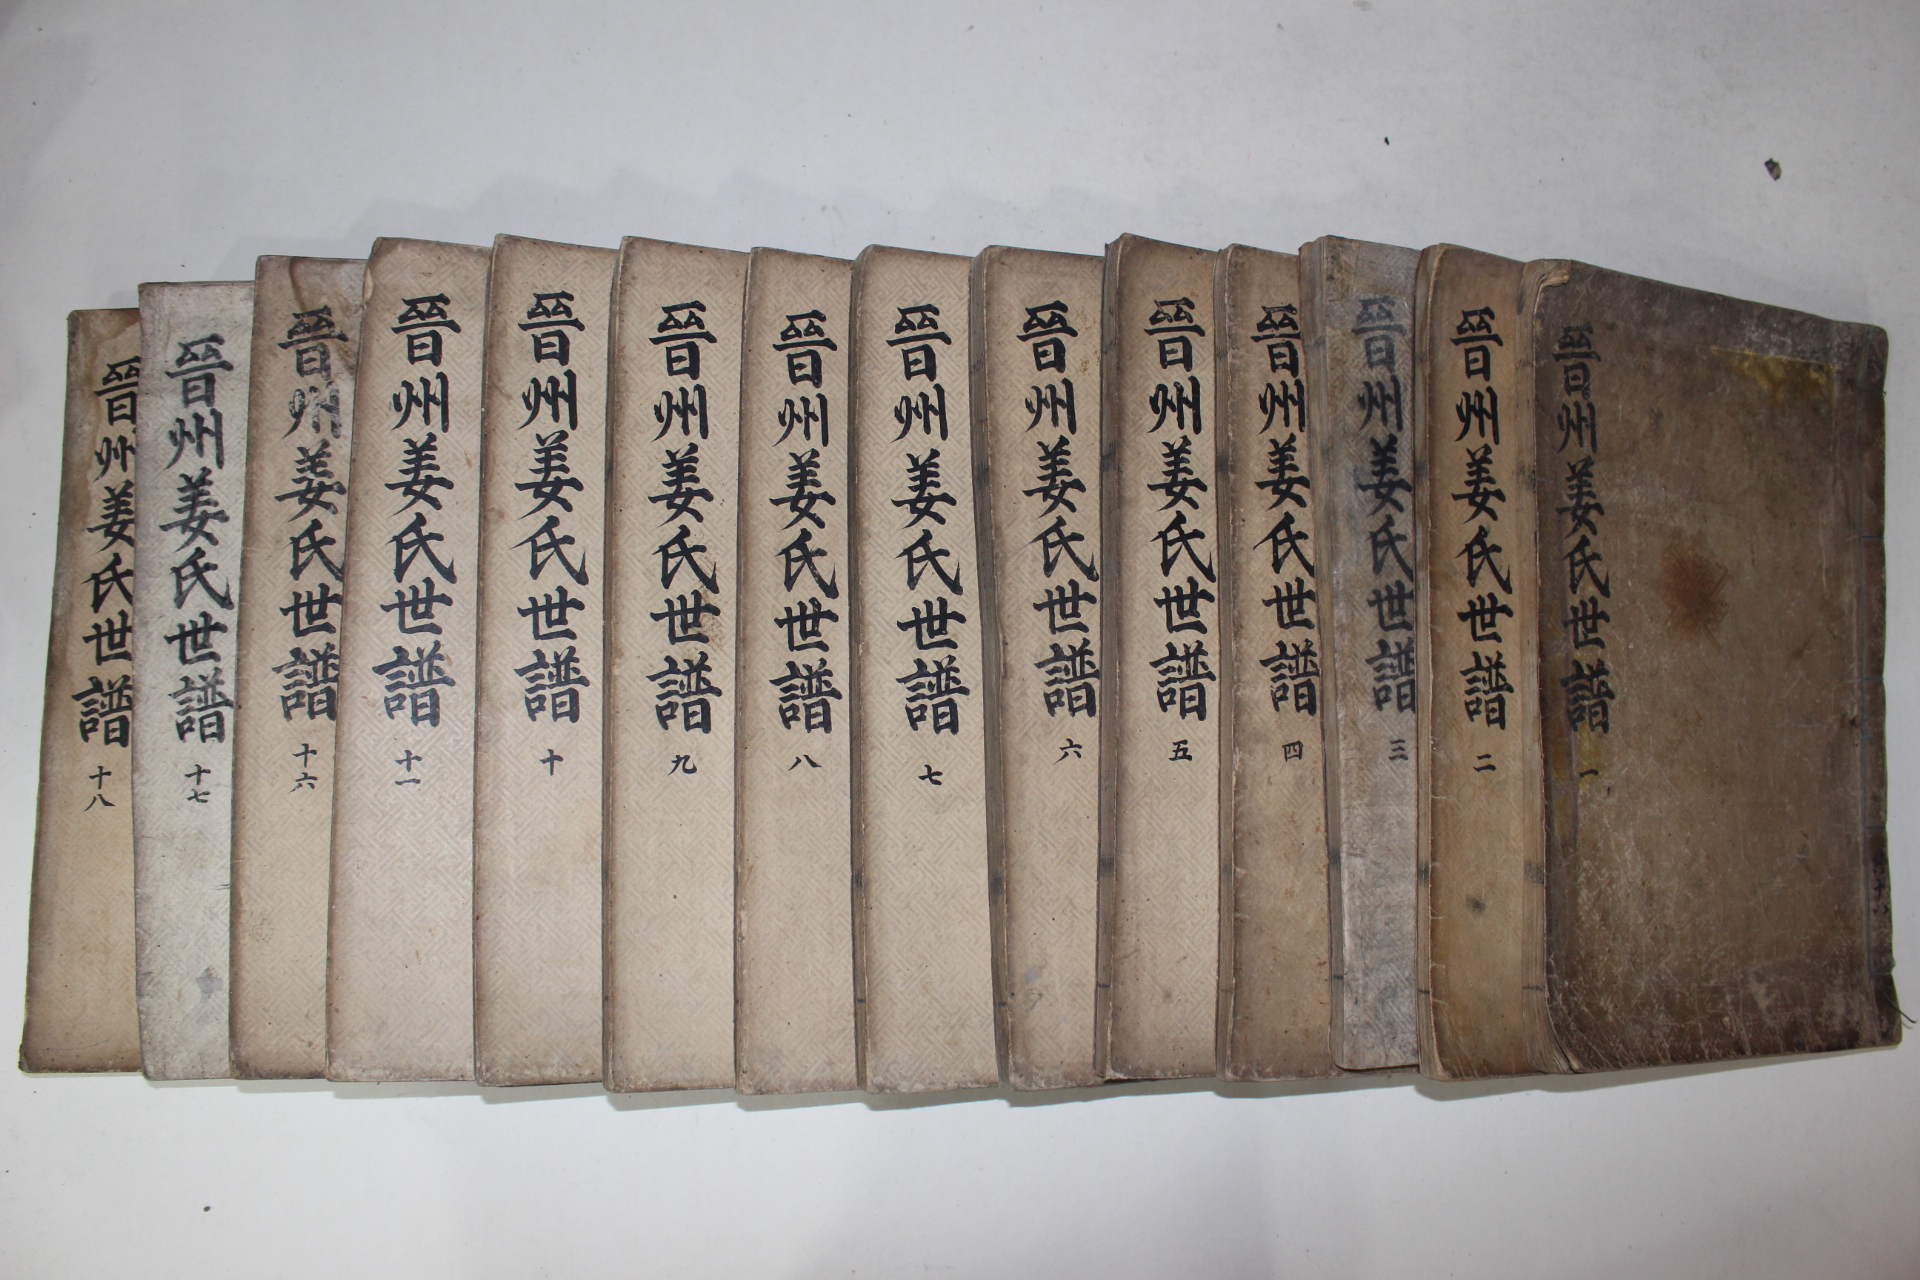 晉州姜氏世譜 一
晉州姜氏世譜 二
晉州姜氏世譜 三
晉州姜氏世譜 四
晉州姜氏世譜 五
晉州姜氏世譜 六
晉州姜氏世譜 七
晉州姜氏世譜 八
晉州姜氏世譜 九
晉州姜氏世譜 十
晉州姜氏世譜 十一
晉州姜氏世譜 十六
晉州姜氏世譜 十七
晉州姜氏世譜 十八